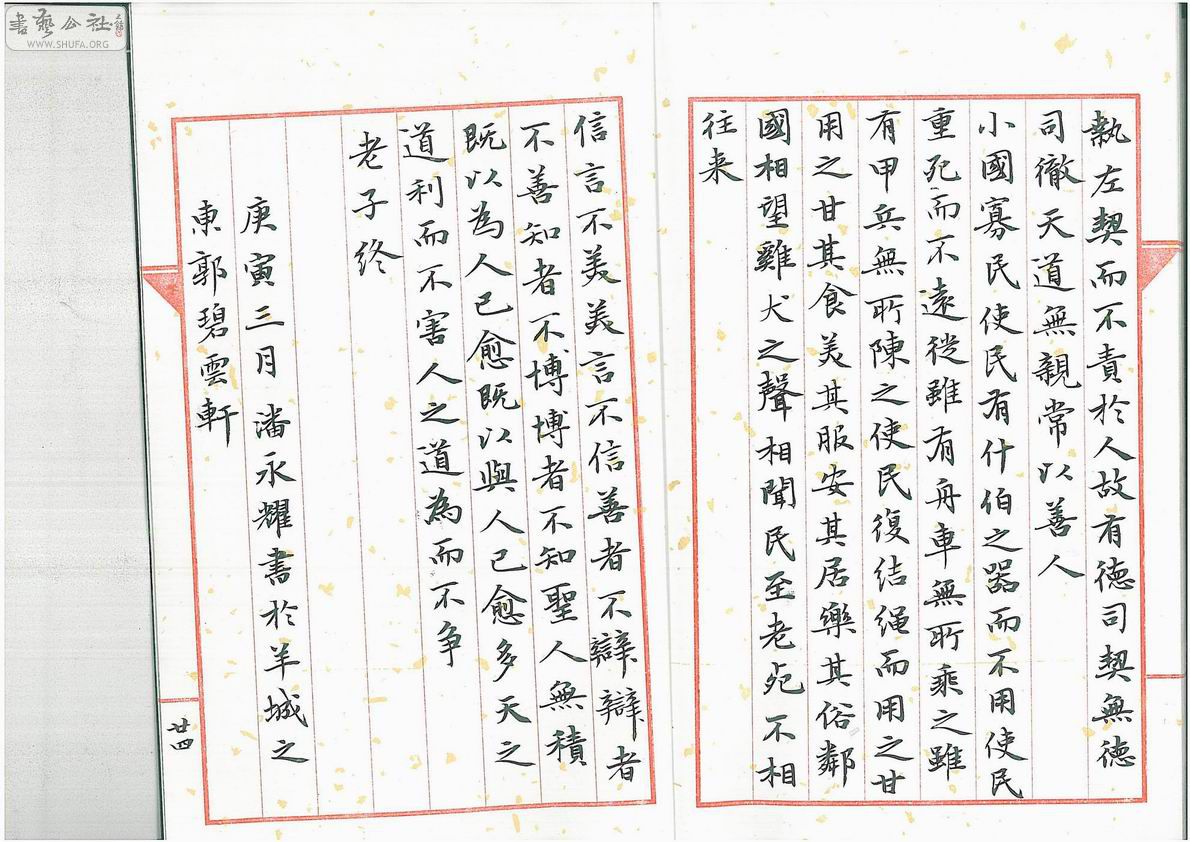 執左契而不責於人故有德司契無德
司徹天道無親常以善人
小國寡民使民有什伯之器而不用使民
重死而不遠徙雖有舟車無所乘之雖
有甲兵無所陳之使民復結绳而用之甘
用之甘其食美其服安其居樂其俗鄰
國相望雞犬之聲相聞民至老死不相
往来
信言不美美言不信善者不辯辯者
不善知者不博博者不知聖人無積
既以為人已愈既以與人已愈多天之
道利而不害人之道為而不争
老子终
庚寅三月潘永耀書於羊城之
東郭碧雲軒
廿四
書藝公社
WWW.SHUFA.ORG